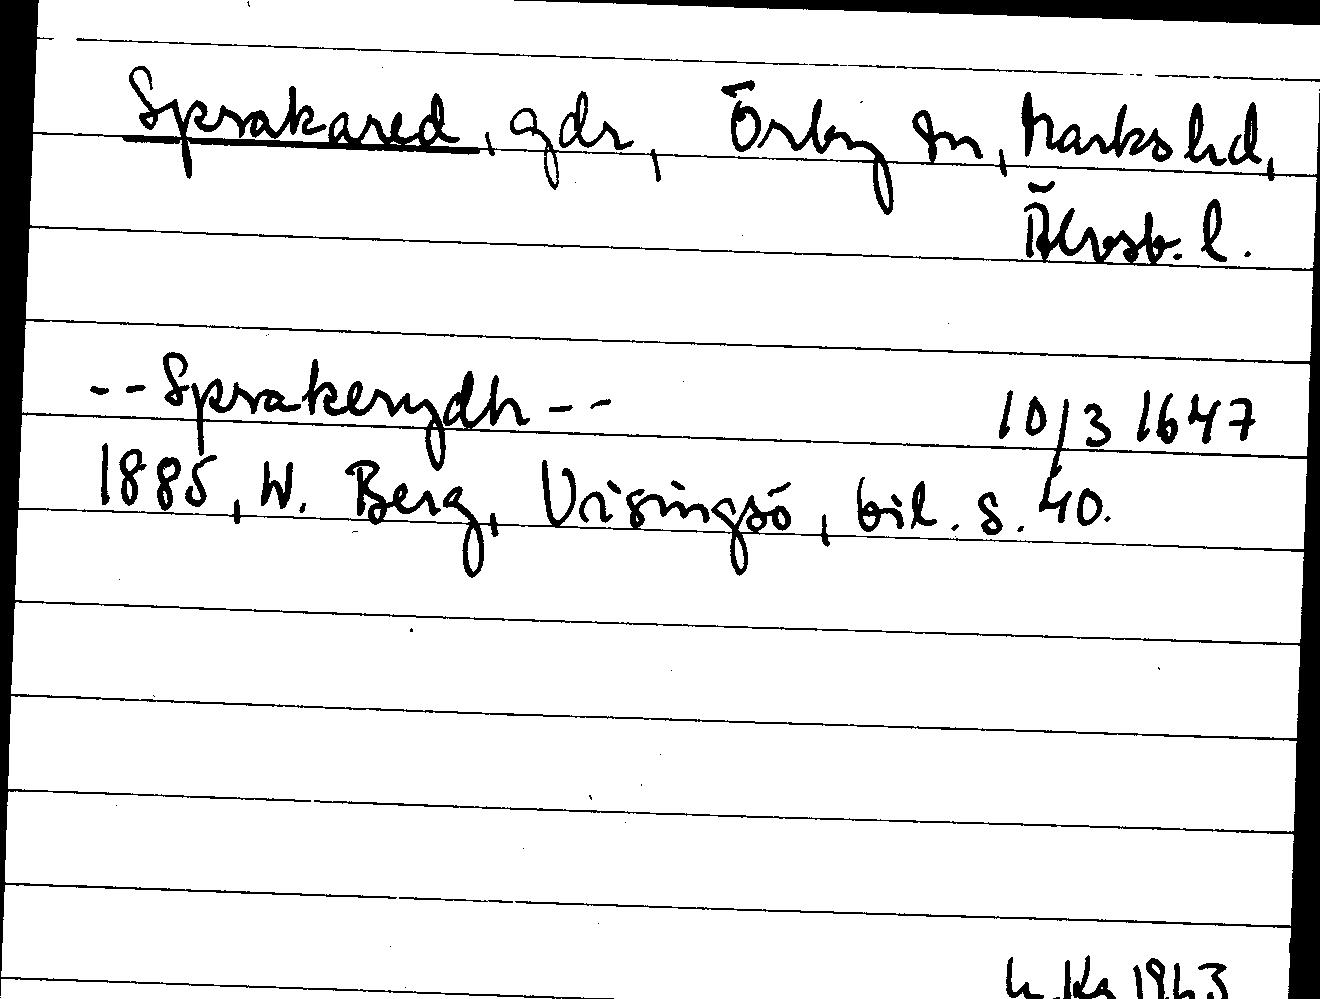 Sprakared, gdr, Örby sn, Marks hd,
Älvsb. l.
--Sprakerydh-- 10/3 1647
1885, W. Berg, Visingsö, bil. s. 40.
1963